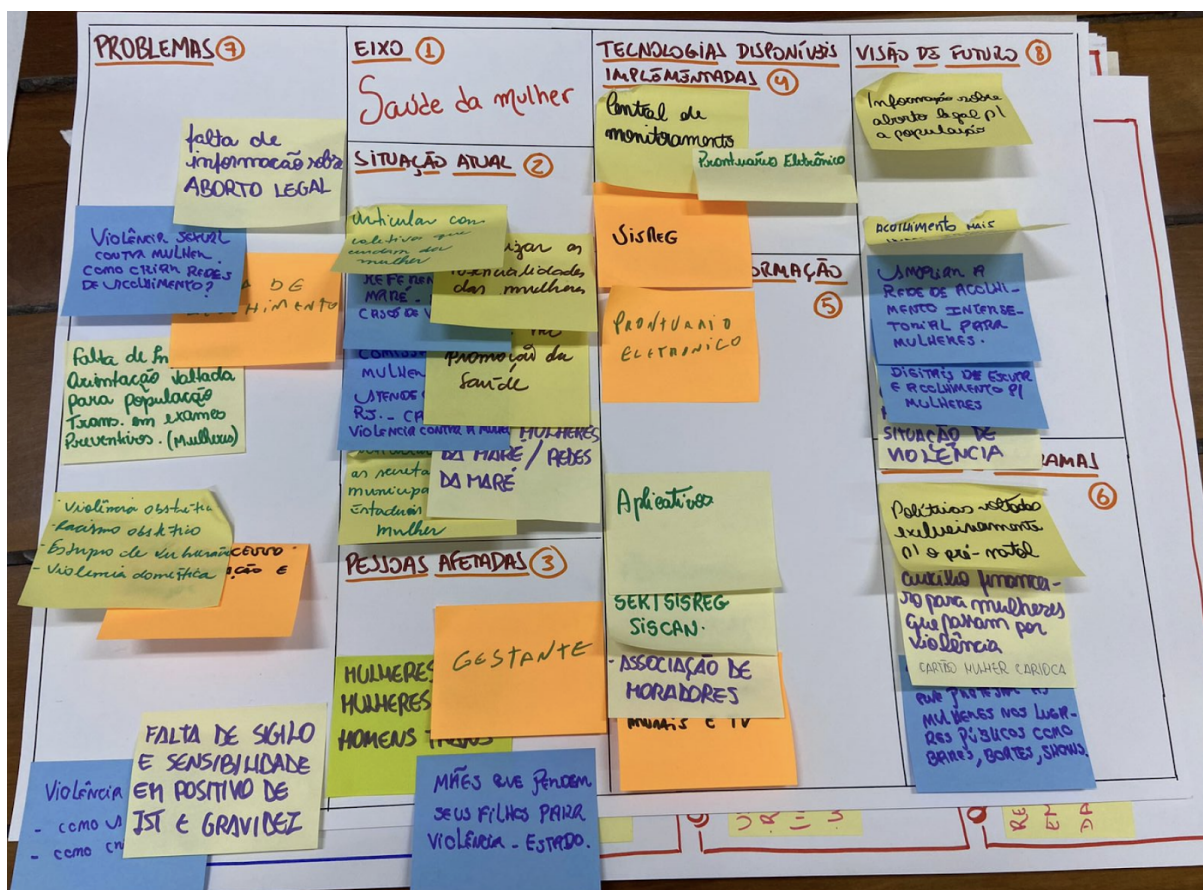 PROBLEMAS 7
falta de
informação sobre
ABORTO LEGAL
VIOLÊNCIA SEXUAL
CONTRA MULHER.
COMO CRIAR REDES
DE ACOLHIMENTO?
DE
Falta de
Orientação voltada
para população
Trans. em exames
Preventivos. (Mulheres)
- Violência obstétrica
- Racismo obstétrico
- Estupro de
- Violência doméstica
FALTA DE SIGILO
E SENSIBILIDADE
EM POSITIVO DE
IST E GRAVIDEZ
VIOLÊNCIA
- COMO
- COMO
EIXO 1
Saúde da mulher
SITUAÇÃO ATUAL 2
Articular com
coletivos que
cuidam da
mulher
potencialidades
das mulheres
MARÉ -
CASOS DE
promoção da
Saúde
MULHER
ATENDE
RJ. - CA
VIOLÊNCIA CONTRA A
MULHERES
DA MARÉ / REDES
DA MARÉ
as
municipa
Estaduais
mulher
PESSOAS AFETADAS 3
MULHERES
MULHERES
HOMENS TRANS
GESTANTE
MÃES QUE PERDEM
SEUS FILHOS PARA
VIOLÊNCIA - ESTADO.
TECNOLOGIAS DISPONÍVEIS
IMPLEMENTADAS 4
Central de
monitoramento
Prontuário Eletrônico
SISREG
ORMAÇÃO
5
PRONTUARIO
ELETRONICO
Aplicativos
SER/SISREG
SISCAN.
- ASSOCIAÇÃO DE
MORADORES
MURAIS E TV
VISÃO DE FUTURO 8
Informação sobre
aborto legal p/
a população
ACOLHIMENTO MAIS
AMPLIAR A
REDE DE ACOLHI-
MENTO INTERSE-
TORIAL PARA
MULHERES.
DIGITAIS DE ESCUTA
E ACOLHIMENTO P/
MULHERES
SITUAÇÃO DE
VIOLÊNCIA
RAMAS
6
Políticas voltadas
exclusivamente
p/ o pré-natal
auxílio financei-
ro para mulheres
que passam por
violência
CARTÃO MULHER CARIOCA
QUE PROTEJAM AS
MULHERES NOS LUGA-
RES PÚBLICOS COMO
BARES, BOATES, SHOWS.